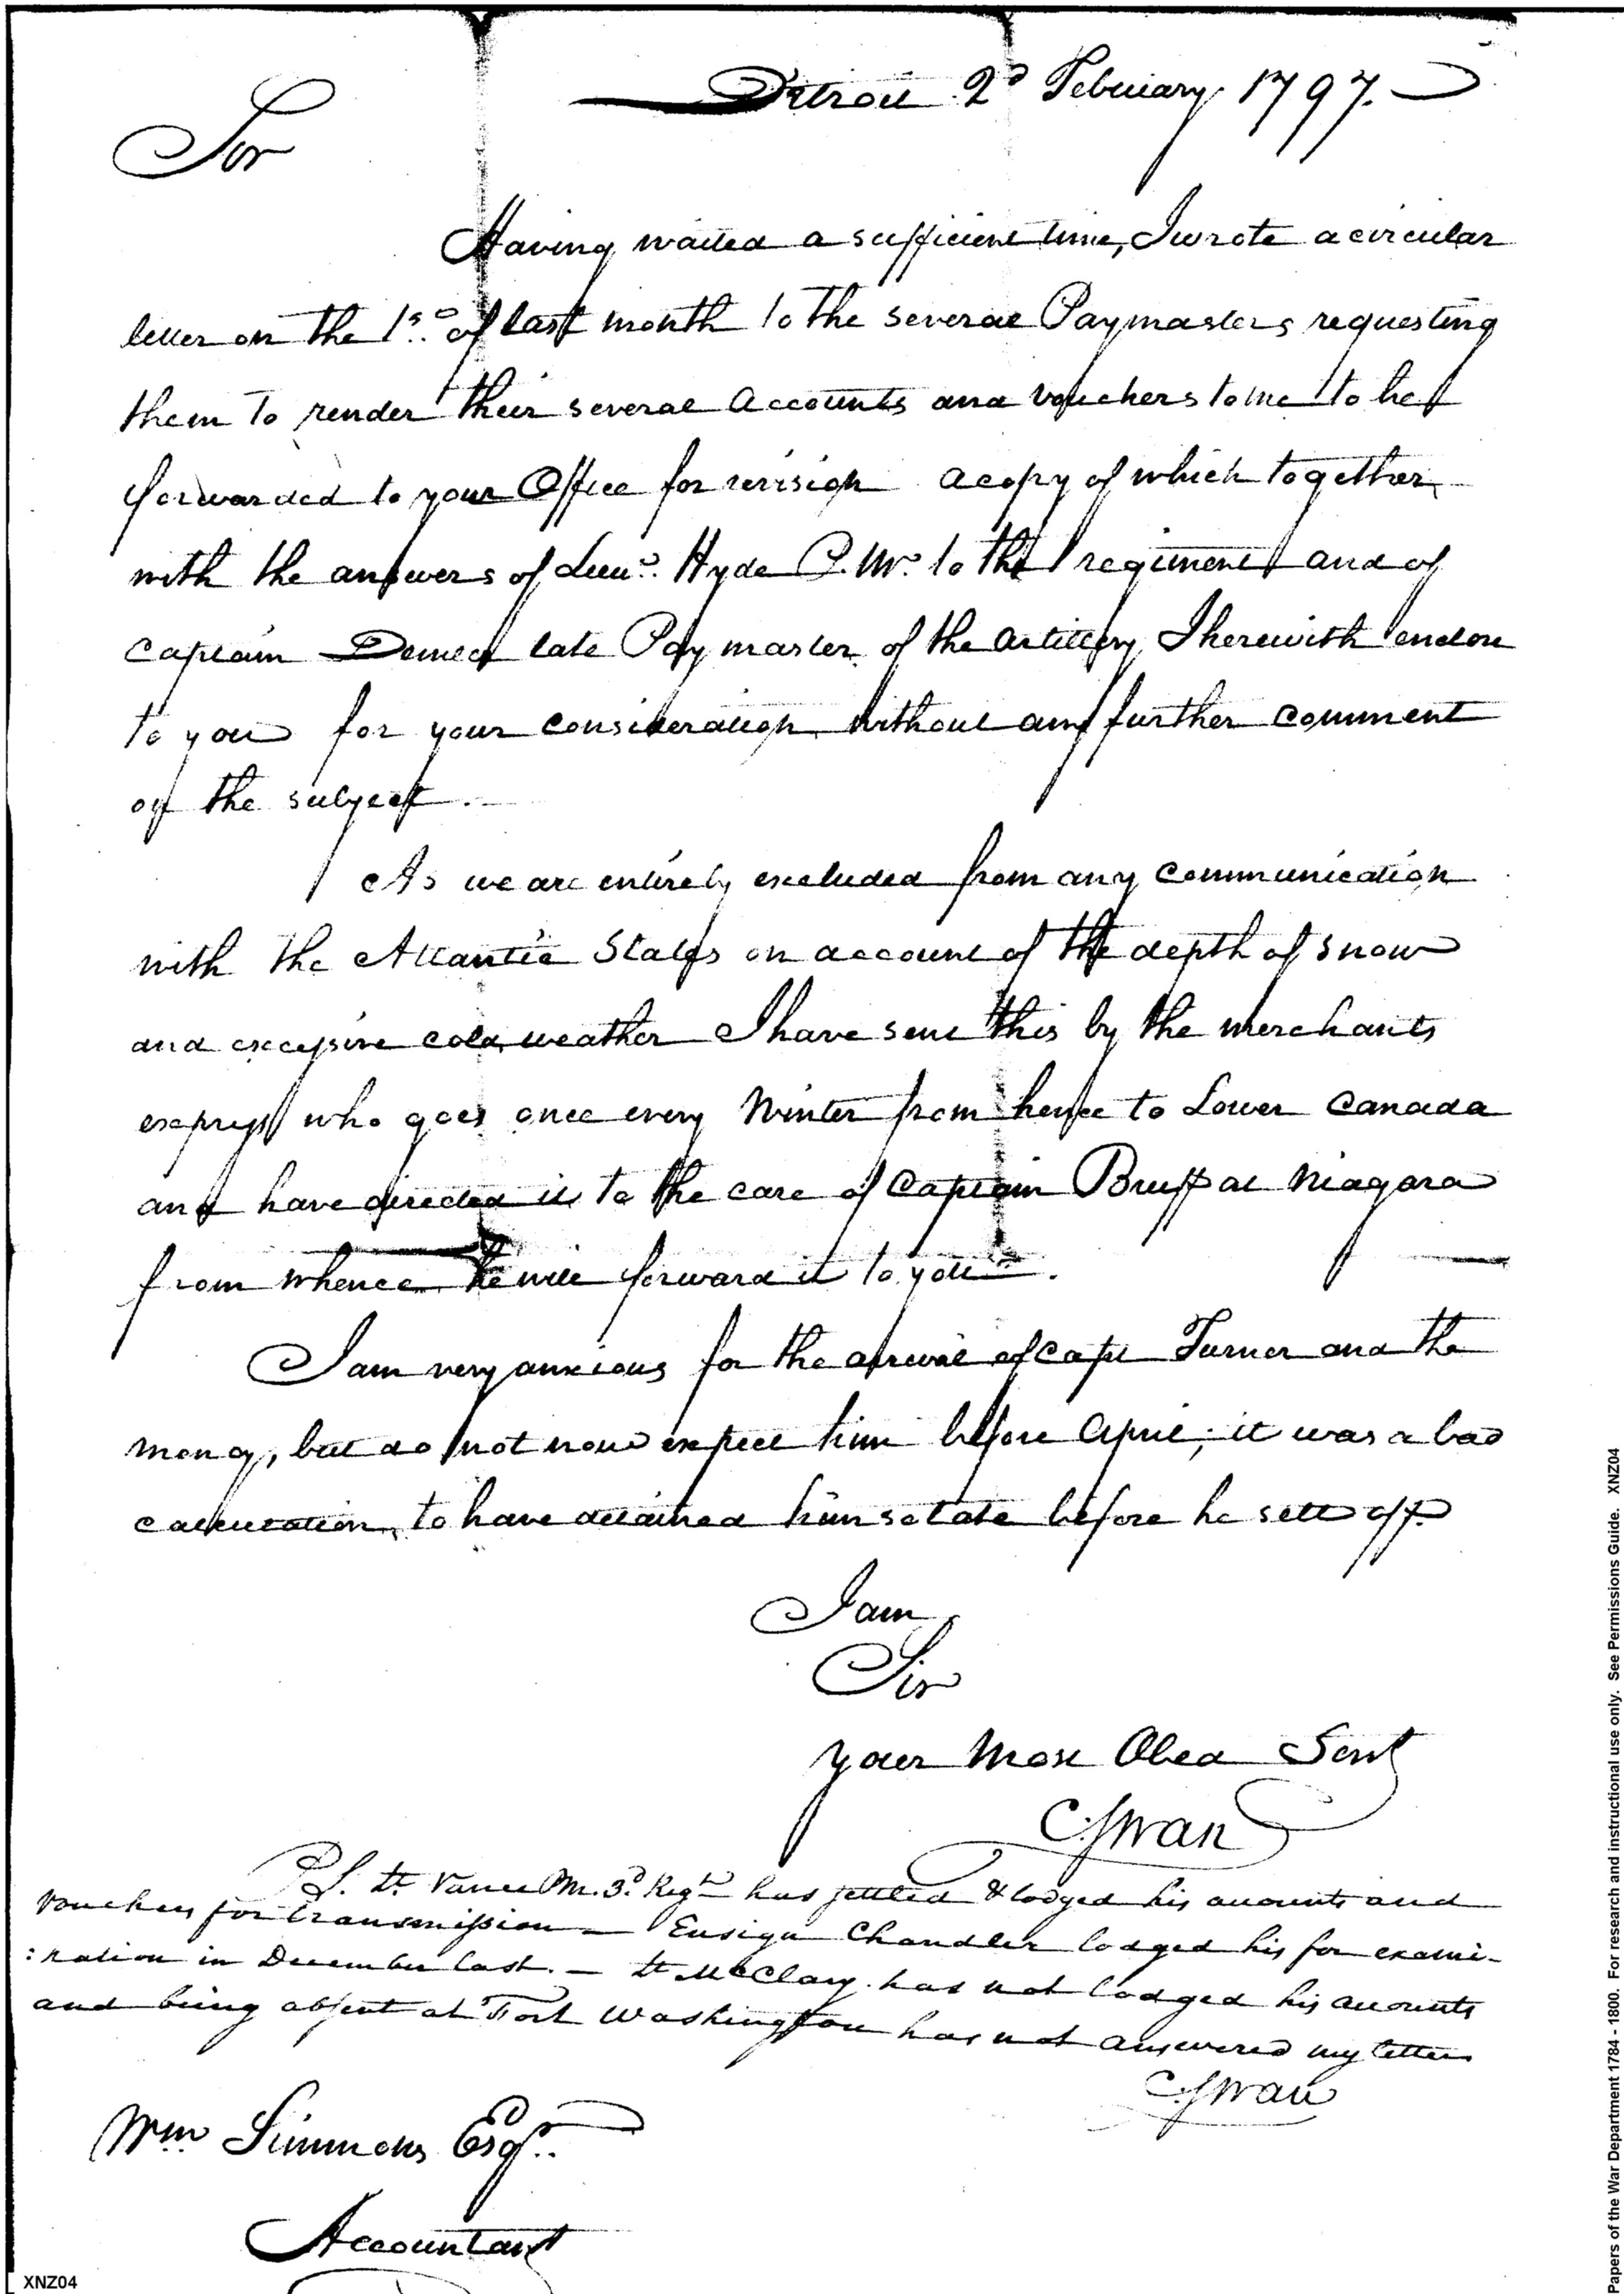 Detroit 2d February 1797.
Sir
Having waited a sufficient time, I wrote a circular
letter on the 1st. of last month to the several Paymasters requesting
them to render their several accounts and vouchers to me to be
forwarded to your Office for revision a copy of which together
with the answers of Lieut. Hyde P. Mr. to the 1 regiment and of
Captain Demler late Paymaster of the artillery I herewith enclose
to you for your consideration without any further comment
on the subject.
As we are entirely excluded from any communication
with the Atlantic States on account of the depth of snow
and excessive cold weather I have sent this by the merchants
express who goes once every Winter from hence to Lower Canada
and have directed it to the care of Captain Bruff at Niagara
from whence he will forward it to you.
I am very anxious for the arrival of Capt Turner and the
money, but do not now expect him before April; it was a bad
calculation, to have detained him so late before he sett off.
I am
Sir
your Most Obed Servt
C Swan
P.S. Lt. Vance PM. 3d Regt has settled & lodged his accounts and
vouchers for transmission — Ensign Chandler lodged his for exami-
:nation in December last. — Lt McClary has not lodged his accounts
and being absent at Fort Washington has not answered my letter
C Swan
Wm Simmons Esqr.
Accountant
XNZ04
Papers of the War Department 1784 - 1800. For research and instructional use only. See Permissions Guide. XNZ04